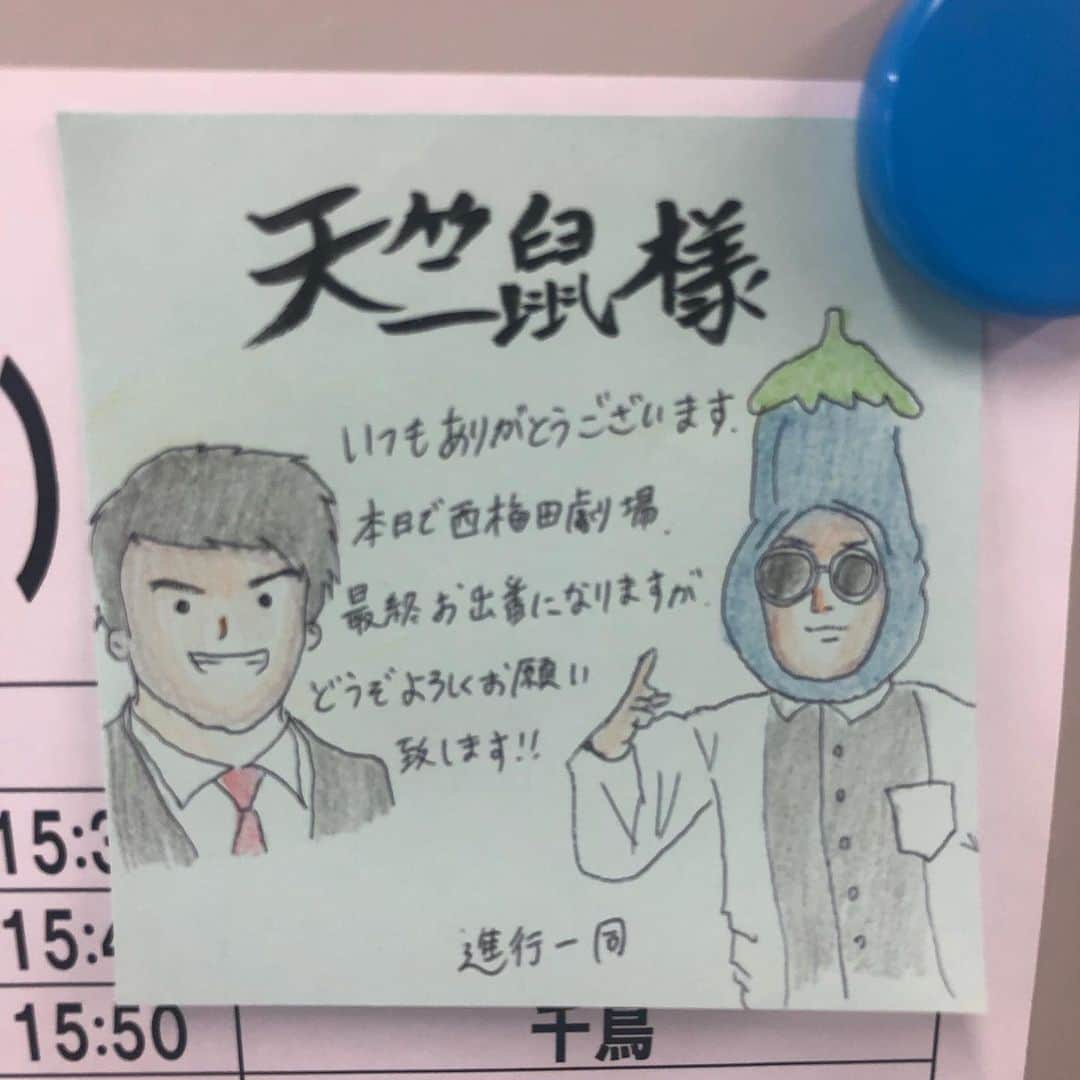 天竺鼠様
いつもありがとうございます.
本日で西梅田劇場.
最終お出番になりますが.
どうぞよろしくお願い
致します!!
進行一同
15:3
15:4
15:50 千鳥